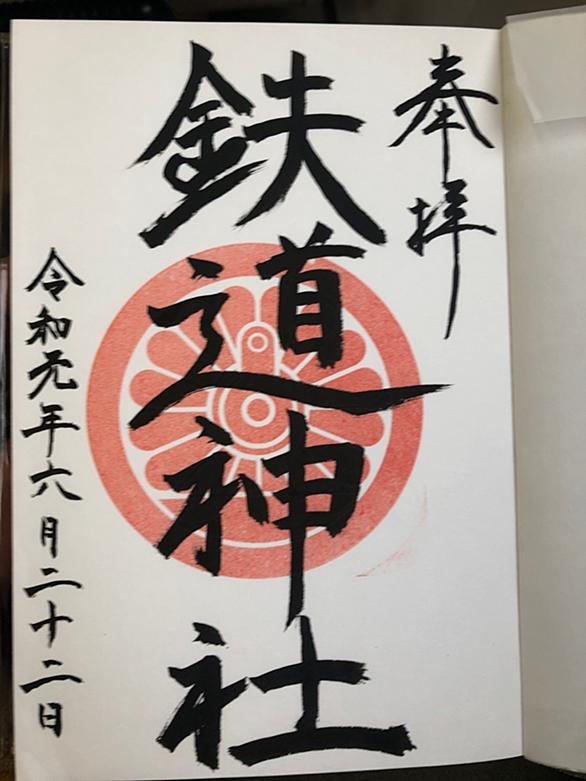 奉拝
鉄道神社
令和元年六月二十二日